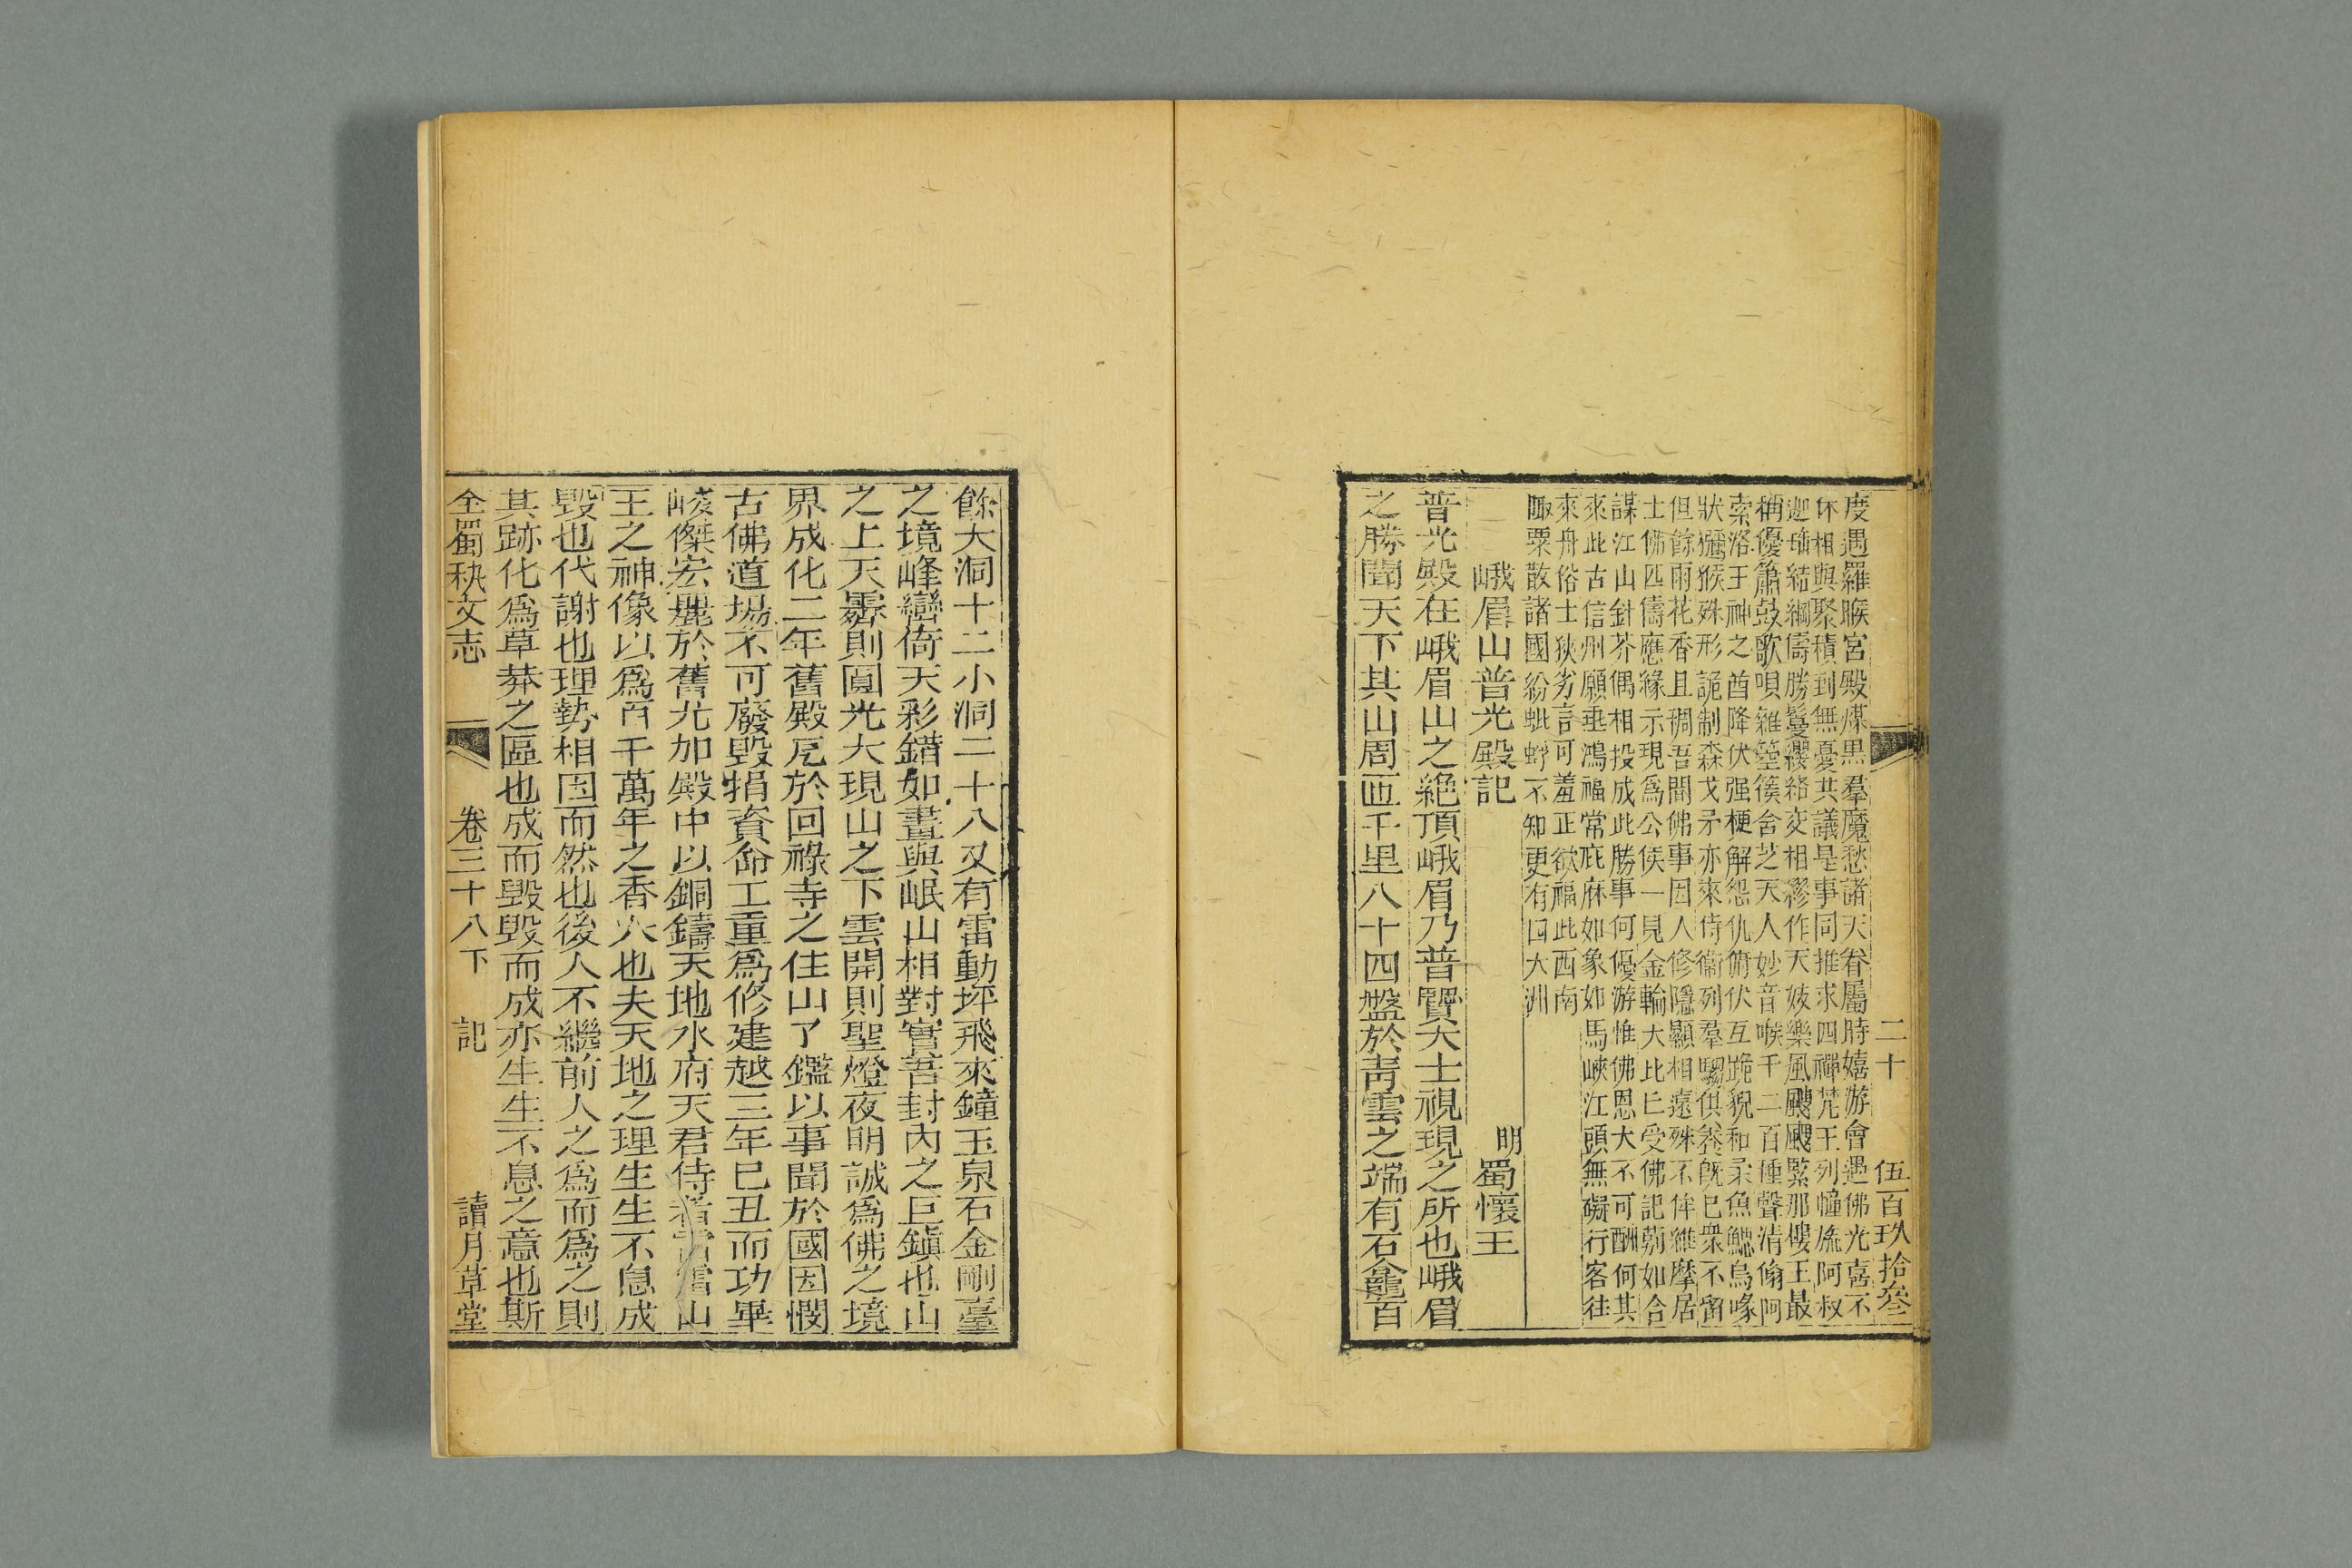 二十 伍百玖拾叄
度遇羅睺宮殿煤黑羣魔愁諸天眷屬時嬉游會遇佛光喜不
休相與聚積到無憂共議是事同推求四禪梵王列幢旒阿叔
迦璠結綱儔勝鬘纓絡交相繆作天妓樂風颼颼緊那樓王最
稱優簫鼓歌唄雜箜篌舍芝天人妙音喉千二百種聲清脩阿
索洛王神之酋降伏强梗解怨仇俯伏互跪貌和柔魚鰓鳥喙
狀獼猴殊形詭制森戈矛亦來侍衞列羣騶俱飱既已衆不留
但餘雨花香且稠吾聞佛事因人修隱顯相遠殊不侔維摩居
士佛匹儔應緣示現爲公侯一見金輪大比丘受佛記莂如合
謀江山針芥偶相投成此勝事何優游惟佛恩大不可酬何其
來此古信州願垂鴻福常庇庥如象如馬峽江頭無礙行客往
來舟俗士狹劣言可羞正欲福此西南
陬粟散諸國紛蚍蜉不知更有四大洲
峨眉山普光殿記 明蜀懷王
普光殿在峨眉山之絕頂峨眉乃普賢大士視現之所也峨眉
之勝聞天下其山周匝千里八十四盤於靑雲之端有石龕百
餘大洞十二小洞二十八又有雷動坪飛來鐘玉泉石金剛臺
之境峰巒倚天彩錯如畫與岷山相對實吾封內之巨鎭也山
之上天霽則圓光大現山之下雲開則聖燈夜明誠爲佛之境
界成化二年舊殿厄於回祿寺之住山了鑑以事聞於國因憫
古佛道場不可廢毀捐資命工重爲修建越三年己丑而功畢
峻傑宏麗於舊尤加殿中以銅鑄天地水府天君侍者當山
王之神像以爲百千萬年之香火也夫天地之理生生不息成
毀也代謝也理勢相因而然也後人不繼前人之爲而爲之則
其跡化爲草莽之區也成而毀毀而成亦生生不息之意也斯
全蜀秇文志 卷三十八下 記 讀月草堂